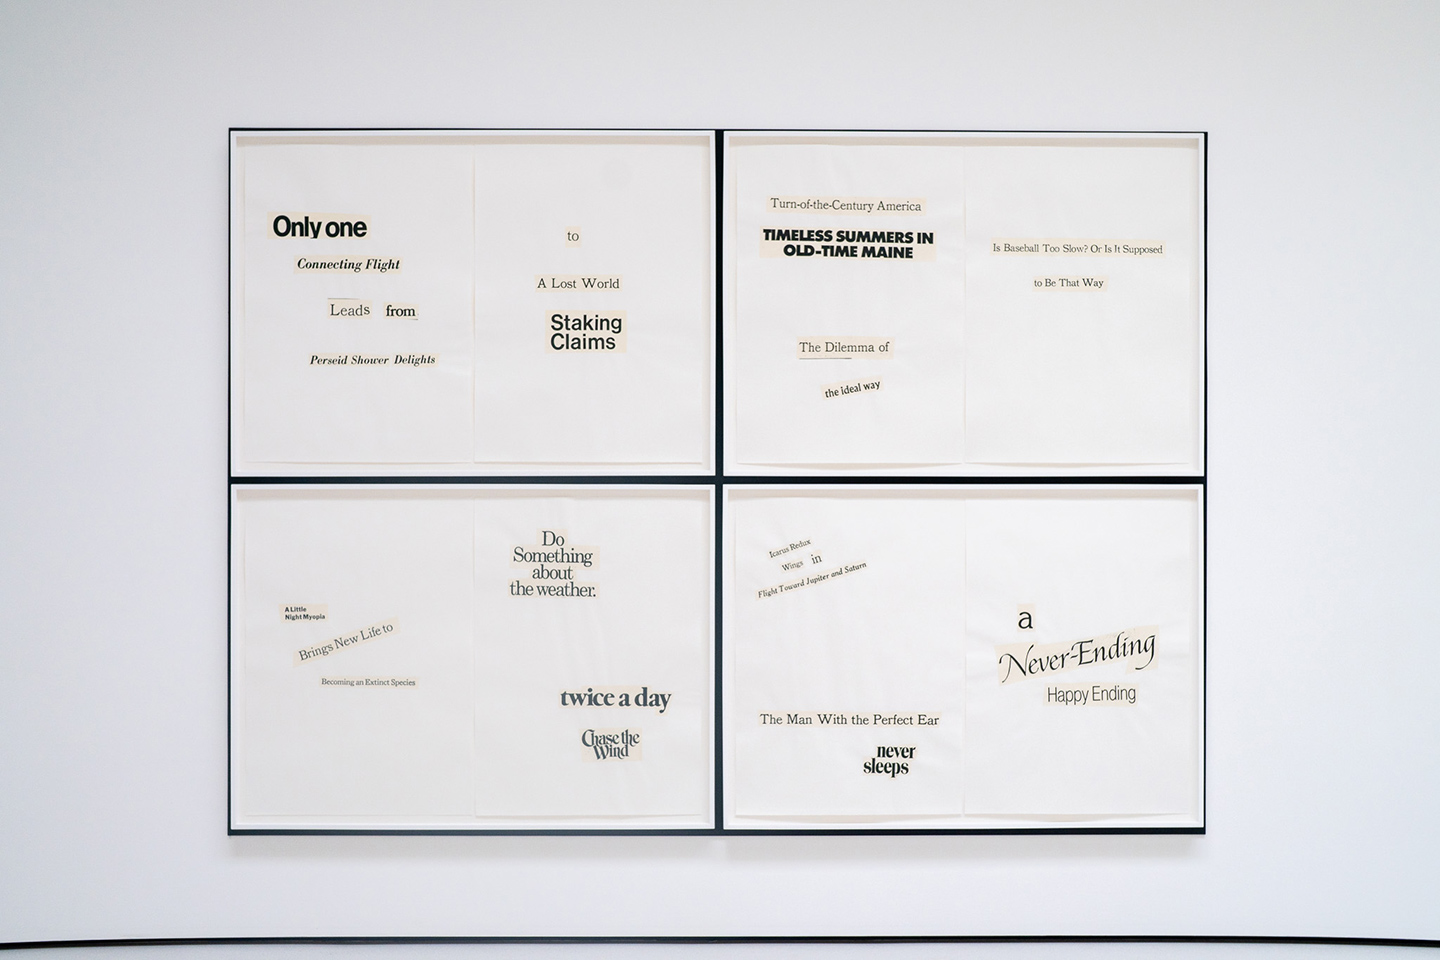 Only one
Connecting Flight
Leads from
Perseid Shower Delights
to
A Lost World
Staking
Claims
Turn-of-the-Century America
TIMELESS SUMMERS IN
OLD-TIME MAINE
The Dilemma of
the ideal way
Is Baseball Too Slow? Or Is It Supposed
to Be That Way
A Little
Night Myopia
Brings New Life to
Becoming an Extinct Species
Do
Something
about
the weather.
twice a day
Chase the
Wind
Icarus Redux
Wings in
Flight Toward Jupiter and Saturn
The Man With the Perfect Ear
never
sleeps
a
Never-Ending
Happy Ending